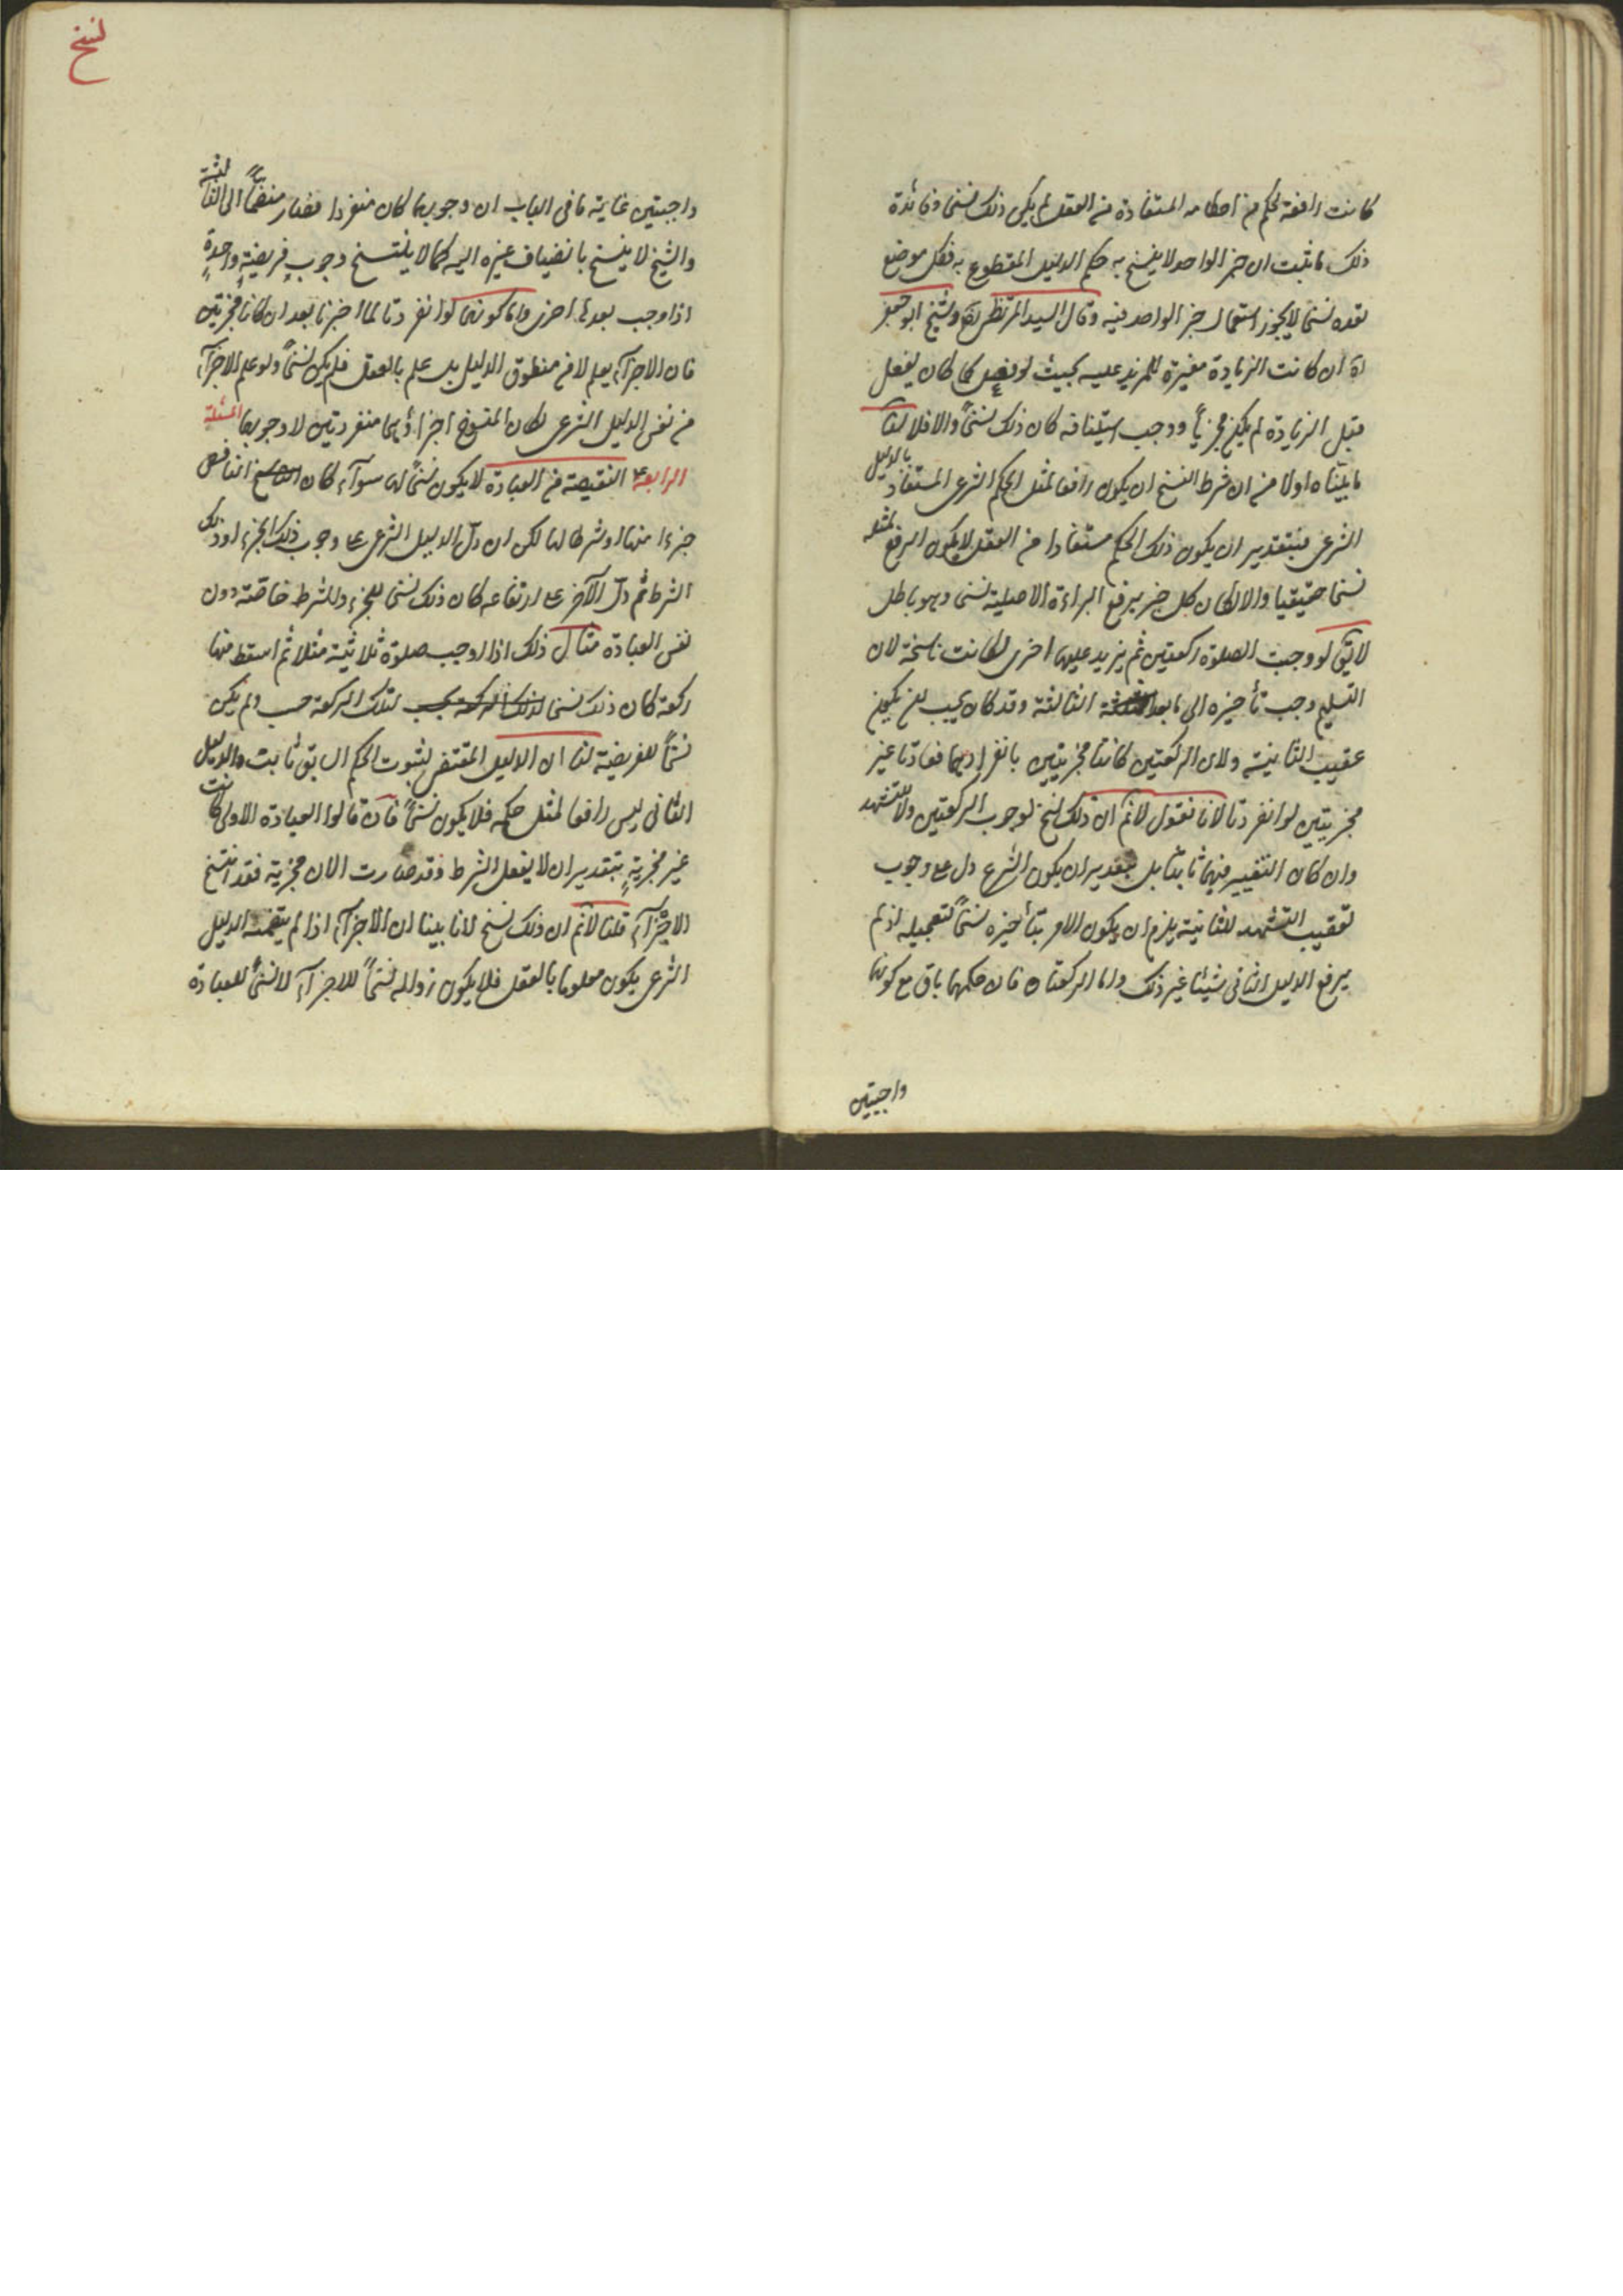 كانت رافعة لحكم من احكامه المستفادة من العقل لم يكن ذلك نسخا وفائدة
ذلك ما ثبت ان خبر الواحد لا ينسخ به حكم الدليل المقطوع به فكل موضع
نعده نسخا لا يجوز استعمال خبر الواحد فيه وقال السيد المرتضى ره والشيخ ابو جعفر
ره ان كانت الزيادة مغيرة للمزيد عليه بحيث لو فعل كما كان يفعل
قبل الزيادة لم يكن مجزيا ووجب استينافه كان ذلك نسخاً والا فلا لنا
ما بيناه اولا من ان شرط النسخ ان يكون رافعا لمثل الحكم الشرعى المستفاد بالدليل
الشرعى فبتقدير ان يكون ذلك الحكم مستفادا من العقل لا يكون الرفع لمثله
نسخا حقيقيا والا لكان كل خبر يرفع البراءة الاصلية نسخا وهو باطل
لا يق لو وجبت الصلوة ركعتين ثم يزيد عليهما اخرى لكانت ناسخة لان
التسليم وجب تأخيره الى ما بعد الثالثة وقد كان يجب يكون
عقيب الثانية ولان الركعتين كانتا مجزيتين بانفرادهما فعادتا غير
مجزيتين لو انفردتا لانا نقول لانم ان ذلك نسخ لوجوب الركعتين ولا للتشهد
وان كان التغيير فيهما ثابتا بل بتقدير ان يكون الشرع دل على وجوب
تعقيب التشهد للثانية يلزم ان يكون الامر بتأخيره نسخاً لتعجيله اذ لم
يرفع الدليل الثانى شيئا غير ذلك واما الركعتان فان حكمهما باق مع كونهما
واجبتين
نسخ
واجبتين غاية ما فى الباب ان وجوبهما كان منفردا فصار منضماً الى الثالثة
والشيخ لا ينسخ بانضياف غيره اليه كما لا ينتسخ وجوب فريضةٍ واحدةٍ
اذا وجب بعدها اخرى واما كونهما لو انفردتا لما اجزتا بعد ان كانتا مجزيتين
فان الاجزآء يعلم لا من منطوق الدليل بل علم بالعقل فلم يكن نسخاً ولو علم الاجزآء
من نفس الدليل الشرعى لكان المنسوخ اجزاؤهما منفردتين لا وجوبهما المسئلة
الرابعة النقيصة من العبادة لا يكون نسخاً لها سوآء كان الناقص
جزءا منها او شرطا لها لكن ان دل الدليل الشرعى على وجوب ذلك الجزء او ذلك
الشرط ثم دلّ الآخر على ارتفاعه كان ذلك نسخا للجزء وللشرط خاصّة دون
نفس العبادة مثال ذلك اذا اوجب صلوة ثلاثية مثلا ثم اسقط منها
ركعة كان ذلك نسخا لتلك الركعة حسب ولم يكن
نسخاً للفريضة لنا ان الدليل المقتضى لثبوت الحكم السابق ثابت والدليل
الثانى ليس رافعا لمثل حكمه فلا يكون نسخاً فان قالوا العبادة الاولى كانت
غير مجزيةٍ بتقدير ان لا يفعل الشرط وقد صارت الان مجزية فقد انتسخ
الاجزآء قلنا لانم ان ذلك نسخ لانا بينا ان الاجزآء اذا لم يتضمنه الدليل
الشرعى يكون معلوما بالعقل فلا يكون زواله نسخاً للاجزآء لا نسخاً للعبادة